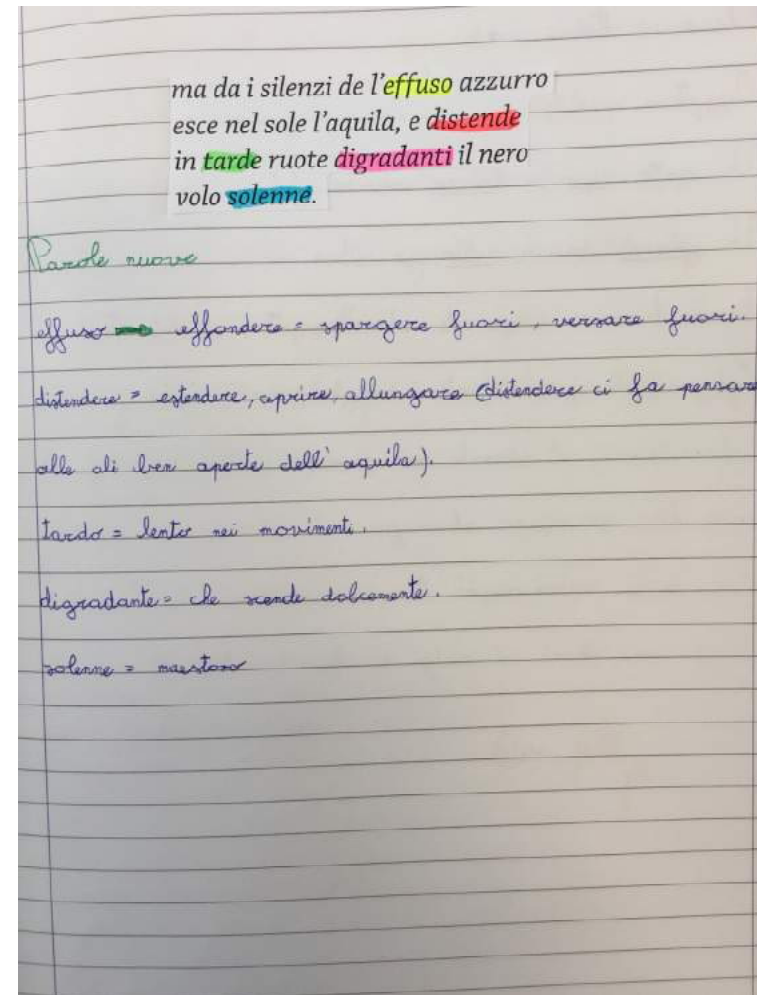 ma da i silenzi de l'effuso azzurro
esce nel sole l'aquila, e distende
in tarde ruote digradanti il nero
volo solenne.
Parole nuove
effuso → effondere = spargere fuori, versare fuori.
distendere = estendere, aprire, allungare (distendere ci fa pensare
alle ali ben aperte dell'aquila).
tardo = lento nei movimenti.
digradante = che scende dolcemente.
solenne = maestoso